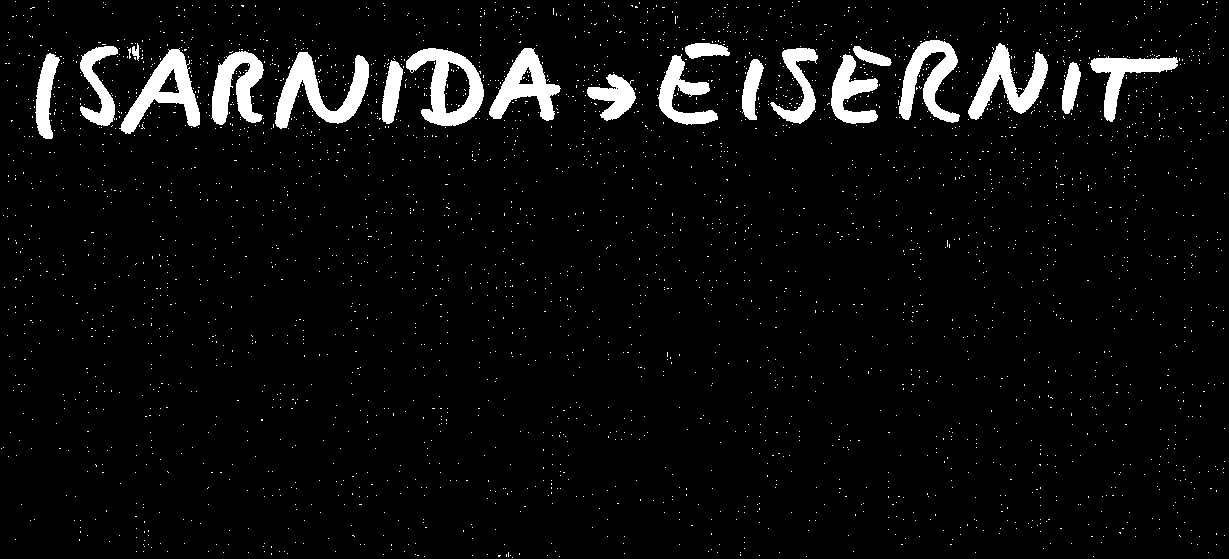 ISARNIDA → EISERNIT